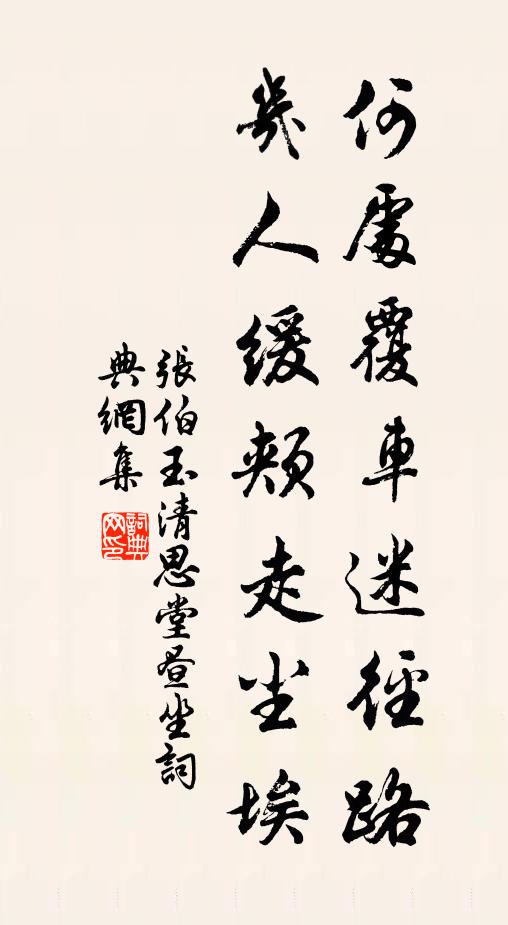 何處覆車迷徑路
幾人緩頰走尘埃
張伯玉清思堂晝坐詞
典網集
詞典
网印